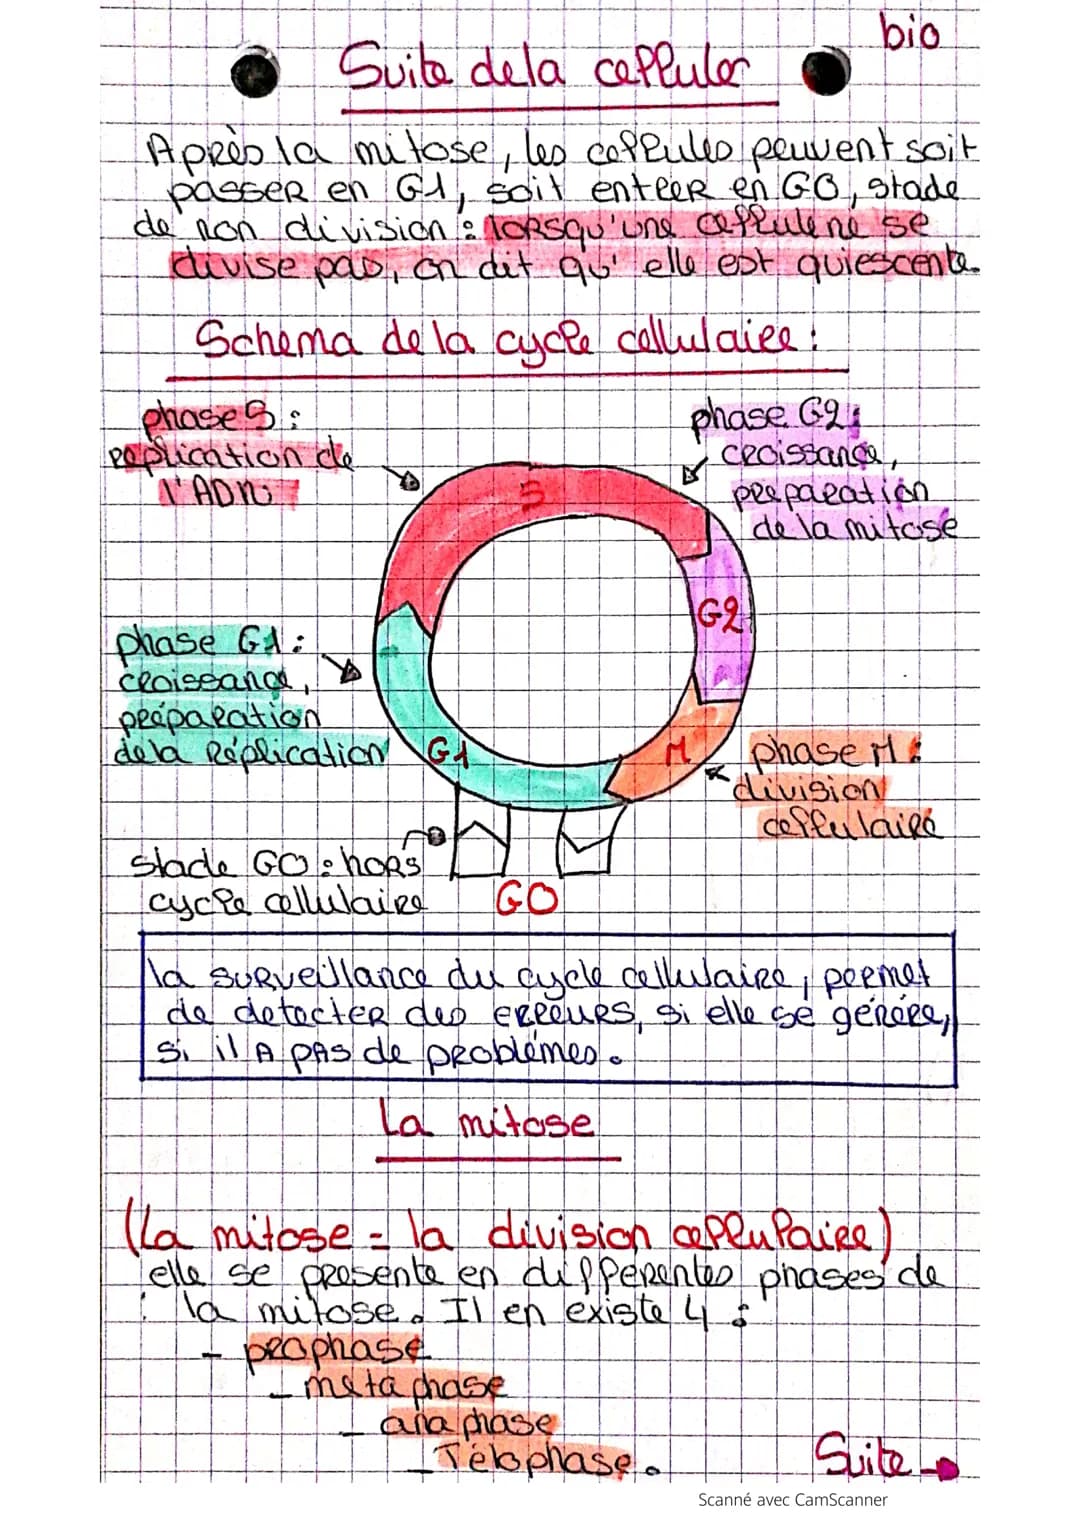 bio
Suite de la celluler
Après la mitose, les cellules peuvent soit
passer en G1, soit entrer en G0, stade
de non division : lorsqu'une cellule ne se
divise pas, on dit qu'elle est quiescente.
Schema de la cycle cellulaire :
phase S :
replication de
l'ADN
phase G2 :
croissance,
preparation
de la mitose
S
G2
phase G1 :
croissance,
préparation
de la Réplication
G1
M
phase M :
division
cellulaire
stade G0 : hors
cycle cellulaire
G0
la surveillance du cycle cellulaire, permet
de detecter des erreurs, si elle se génère,
si il A PAS de problèmes.
La mitose
(La mitose = la division cellulaire)
elle se presente en differentes phases de
la mitose. Il en existe 4 :
- prophase
- meta phase
- ana phase
- Télophase.
Suite
Scanné avec CamScanner